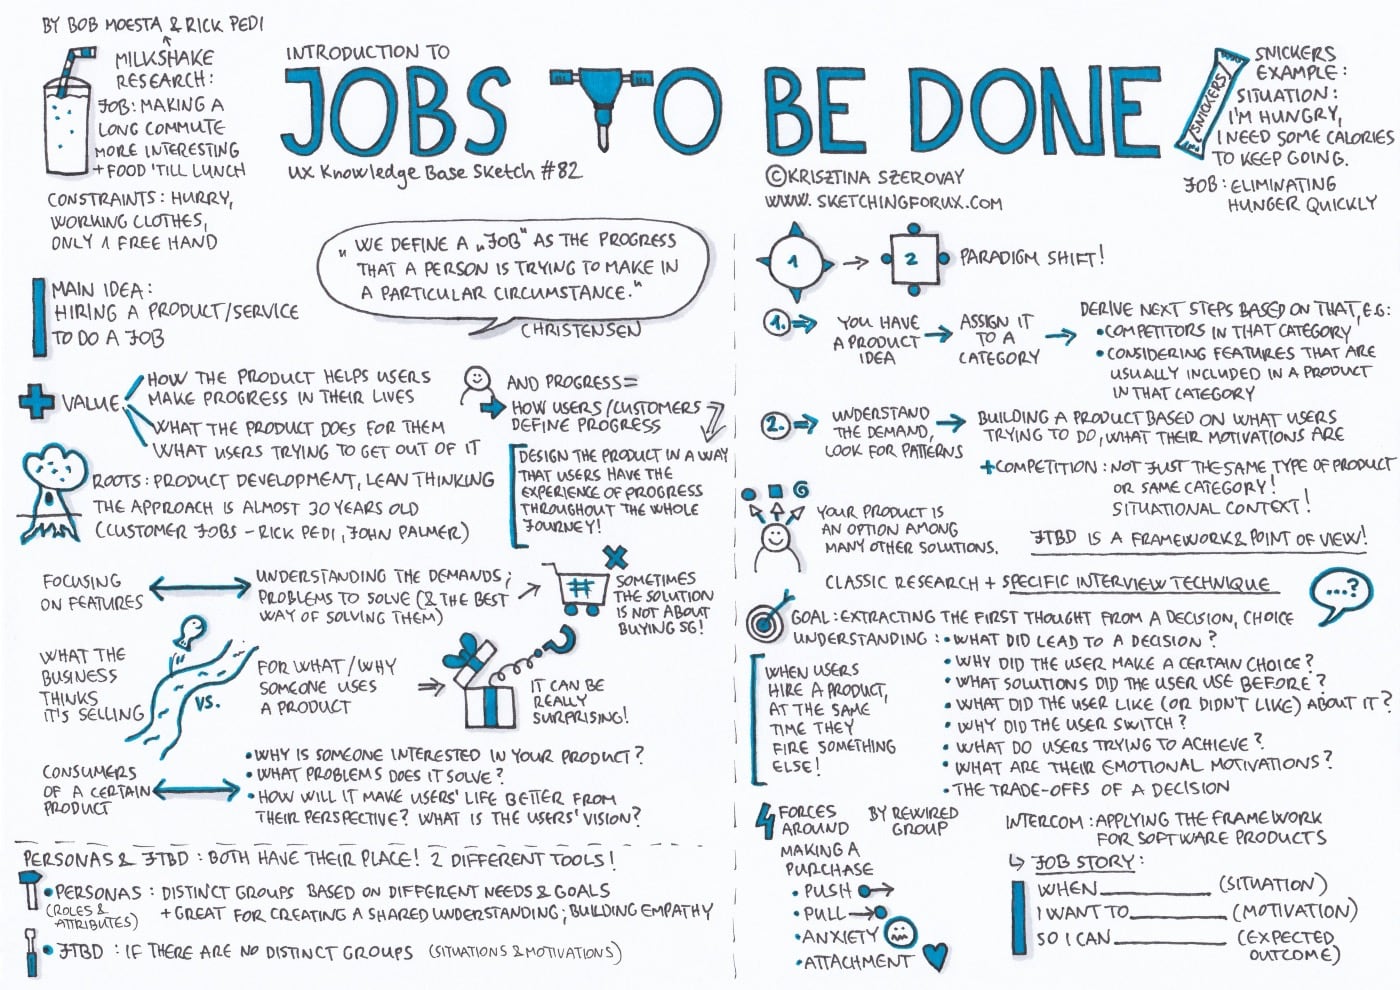 BY BOB MOESTA & RICK PEDI
MILKSHAKE
RESEARCH:
JOB: MAKING A
LONG COMMUTE
MORE INTERESTING
+ FOOD 'TILL LUNCH
CONSTRAINTS: HURRY,
WORKING CLOTHES,
ONLY 1 FREE HAND
INTRODUCTION TO
JOBS TO BE DONE
UX Knowledge Base Sketch #82
©KRISZTINA SZEROVAY
WWW.SKETCHINGFORUX.COM
SNICKERS
SNICKERS
EXAMPLE:
SITUATION:
I'M HUNGRY,
I NEED SOME CALORIES
TO KEEP GOING.
JOB: ELIMINATING
HUNGER QUICKLY
„WE DEFINE A „JOB" AS THE PROGRESS
THAT A PERSON IS TRYING TO MAKE IN
A PARTICULAR CIRCUMSTANCE."
CHRISTENSEN
MAIN IDEA:
HIRING A PRODUCT/SERVICE
TO DO A JOB
VALUE
HOW THE PRODUCT HELPS USERS
MAKE PROGRESS IN THEIR LIVES
WHAT THE PRODUCT DOES FOR THEM
WHAT USERS TRYING TO GET OUT OF IT
AND PROGRESS=
HOW USERS/CUSTOMERS
DEFINE PROGRESS
DESIGN THE PRODUCT IN A WAY
THAT USERS HAVE THE
EXPERIENCE OF PROGRESS
THROUGHOUT THE WHOLE
JOURNEY!
ROOTS: PRODUCT DEVELOPMENT, LEAN THINKING
THE APPROACH IS ALMOST 30 YEARS OLD
(CUSTOMER JOBS - RICK PEDI, JOHN PALMER)
FOCUSING
ON FEATURES
UNDERSTANDING THE DEMANDS;
PROBLEMS TO SOLVE (& THE BEST
WAY OF SOLVING THEM)
#
SOMETIMES
THE SOLUTION
IS NOT ABOUT
BUYING SG!
WHAT THE
BUSINESS
THINKS
IT'S SELLING
VS.
FOR WHAT/WHY
SOMEONE USES
A PRODUCT
?
IT CAN BE
REALLY
SURPRISING!
CONSUMERS
OF A CERTAIN
PRODUCT
• WHY IS SOMEONE INTERESTED IN YOUR PRODUCT?
• WHAT PROBLEMS DOES IT SOLVE?
• HOW WILL IT MAKE USERS' LIFE BETTER FROM
THEIR PERSPECTIVE? WHAT IS THE USERS' VISION?
PERSONAS & JTBD: BOTH HAVE THEIR PLACE! 2 DIFFERENT TOOLS!
• PERSONAS: DISTINCT GROUPS BASED ON DIFFERENT NEEDS & GOALS
(ROLES &
ATTRIBUTES)
+ GREAT FOR CREATING A SHARED UNDERSTANDING; BUILDING EMPATHY
• JTBD: IF THERE ARE NO DISTINCT GROUPS (SITUATIONS & MOTIVATIONS)
1 → 2 PARADIGM SHIFT!
1.
YOU HAVE
A PRODUCT
IDEA
ASSIGN IT
TO A
CATEGORY
DERIVE NEXT STEPS BASED ON THAT, E.G:
• COMPETITORS IN THAT CATEGORY
• CONSIDERING FEATURES THAT ARE
USUALLY INCLUDED IN A PRODUCT
IN THAT CATEGORY
2.
UNDERSTAND
THE DEMAND,
LOOK FOR PATTERNS
BUILDING A PRODUCT BASED ON WHAT USERS
TRYING TO DO, WHAT THEIR MOTIVATIONS ARE
+ COMPETITION: NOT JUST THE SAME TYPE OF PRODUCT
OR SAME CATEGORY!
SITUATIONAL CONTEXT!
YOUR PRODUCT IS
AN OPTION AMONG
MANY OTHER SOLUTIONS.
JTBD IS A FRAMEWORK & POINT OF VIEW!
CLASSIC RESEARCH + SPECIFIC INTERVIEW TECHNIQUE
...?
GOAL: EXTRACTING THE FIRST THOUGHT FROM A DECISION, CHOICE
UNDERSTANDING: • WHAT DID LEAD TO A DECISION?
• WHY DID THE USER MAKE A CERTAIN CHOICE?
• WHAT SOLUTIONS DID THE USER USE BEFORE?
• WHAT DID THE USER LIKE (OR DIDN'T LIKE) ABOUT IT?
• WHY DID THE USER SWITCH?
• WHAT DO USERS TRYING TO ACHIEVE?
• WHAT ARE THEIR EMOTIONAL MOTIVATIONS?
• THE TRADE-OFFS OF A DECISION
WHEN USERS
HIRE A PRODUCT,
AT THE SAME
TIME THEY
FIRE SOMETHING
ELSE!
4 FORCES
AROUND
MAKING A
PURCHASE
BY REWIRED
GROUP
• PUSH
• PULL
• ANXIETY
• ATTACHMENT
INTERCOM: APPLYING THE FRAMEWORK
FOR SOFTWARE PRODUCTS
JOB STORY:
WHEN__________ (SITUATION)
I WANT TO__________ (MOTIVATION)
SO I CAN__________ (EXPECTED
OUTCOME)